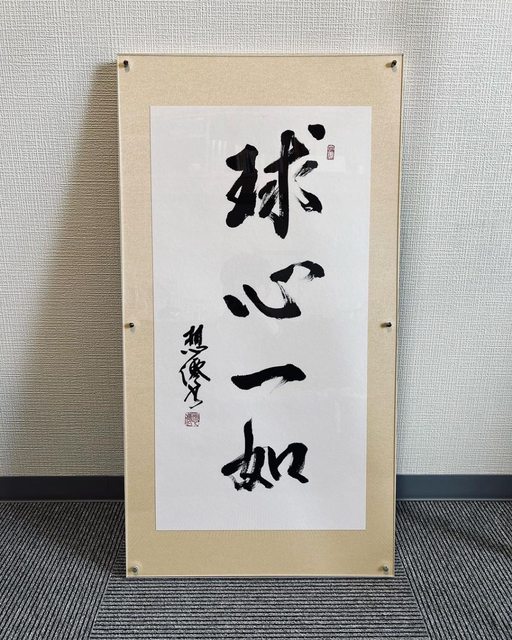 球心一如